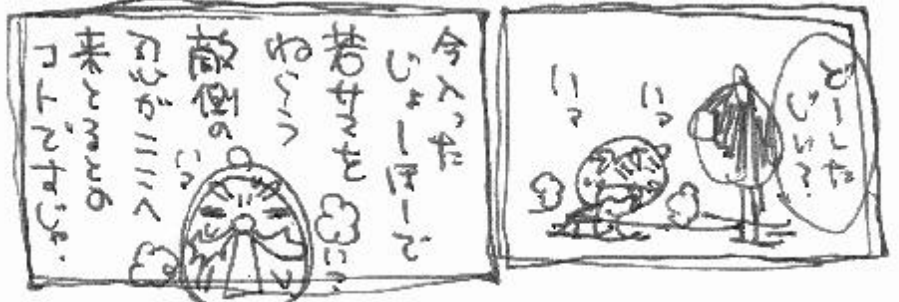 どーした
じい?
いっ
いっ
今入った
じょーほーで
若サマを
ねらう
敵側の
忍がここへ
来とるとの
コトですじゃ.
いっ
いっ